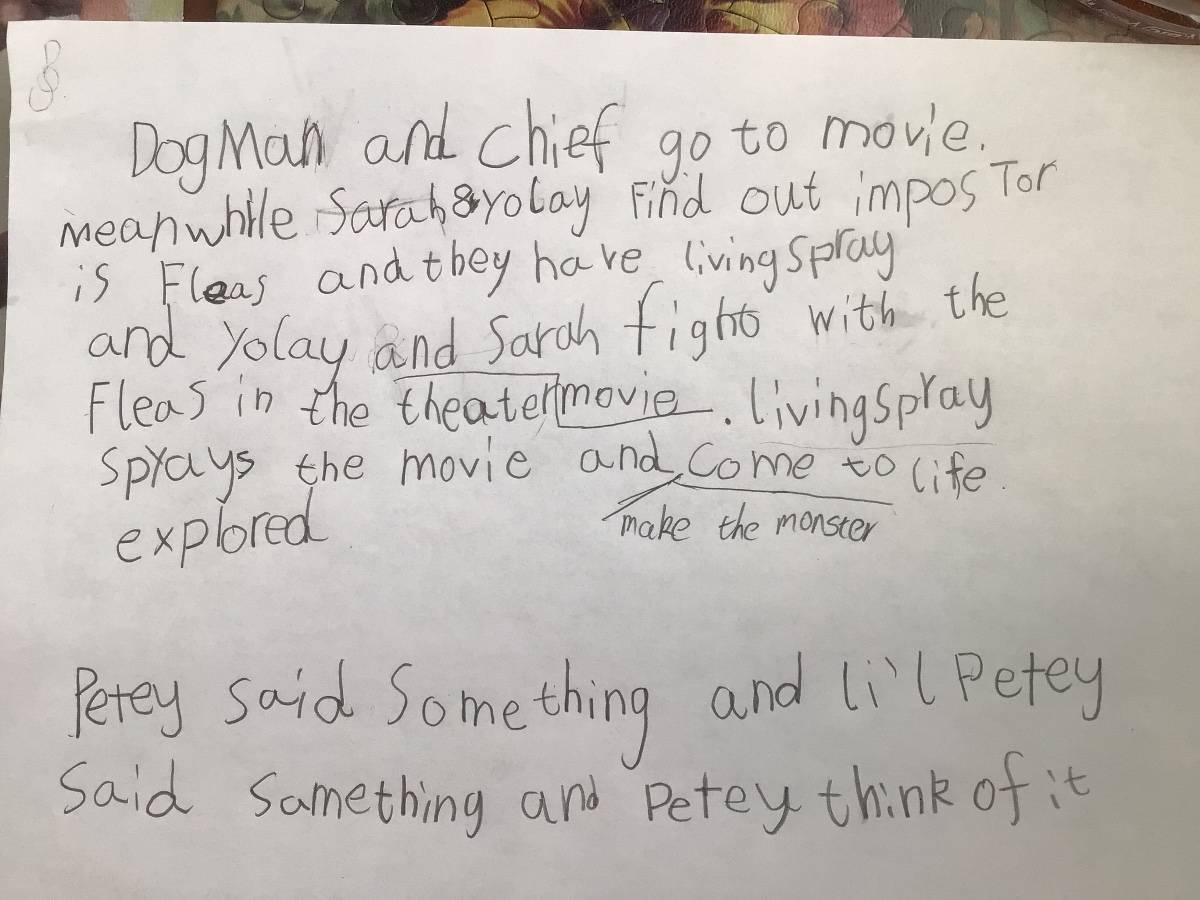 DogMan and chief go to movie.
meanwhile Sarah & yolay Find out imposTor
is Fleas and they have livingspray
and yolay and Sarah fight with the
Fleas in the theater movie. livingspray
sprays the movie and come to life.
make the monster
explored
Petey said Something and li'l Petey
Said Something and Petey think of it